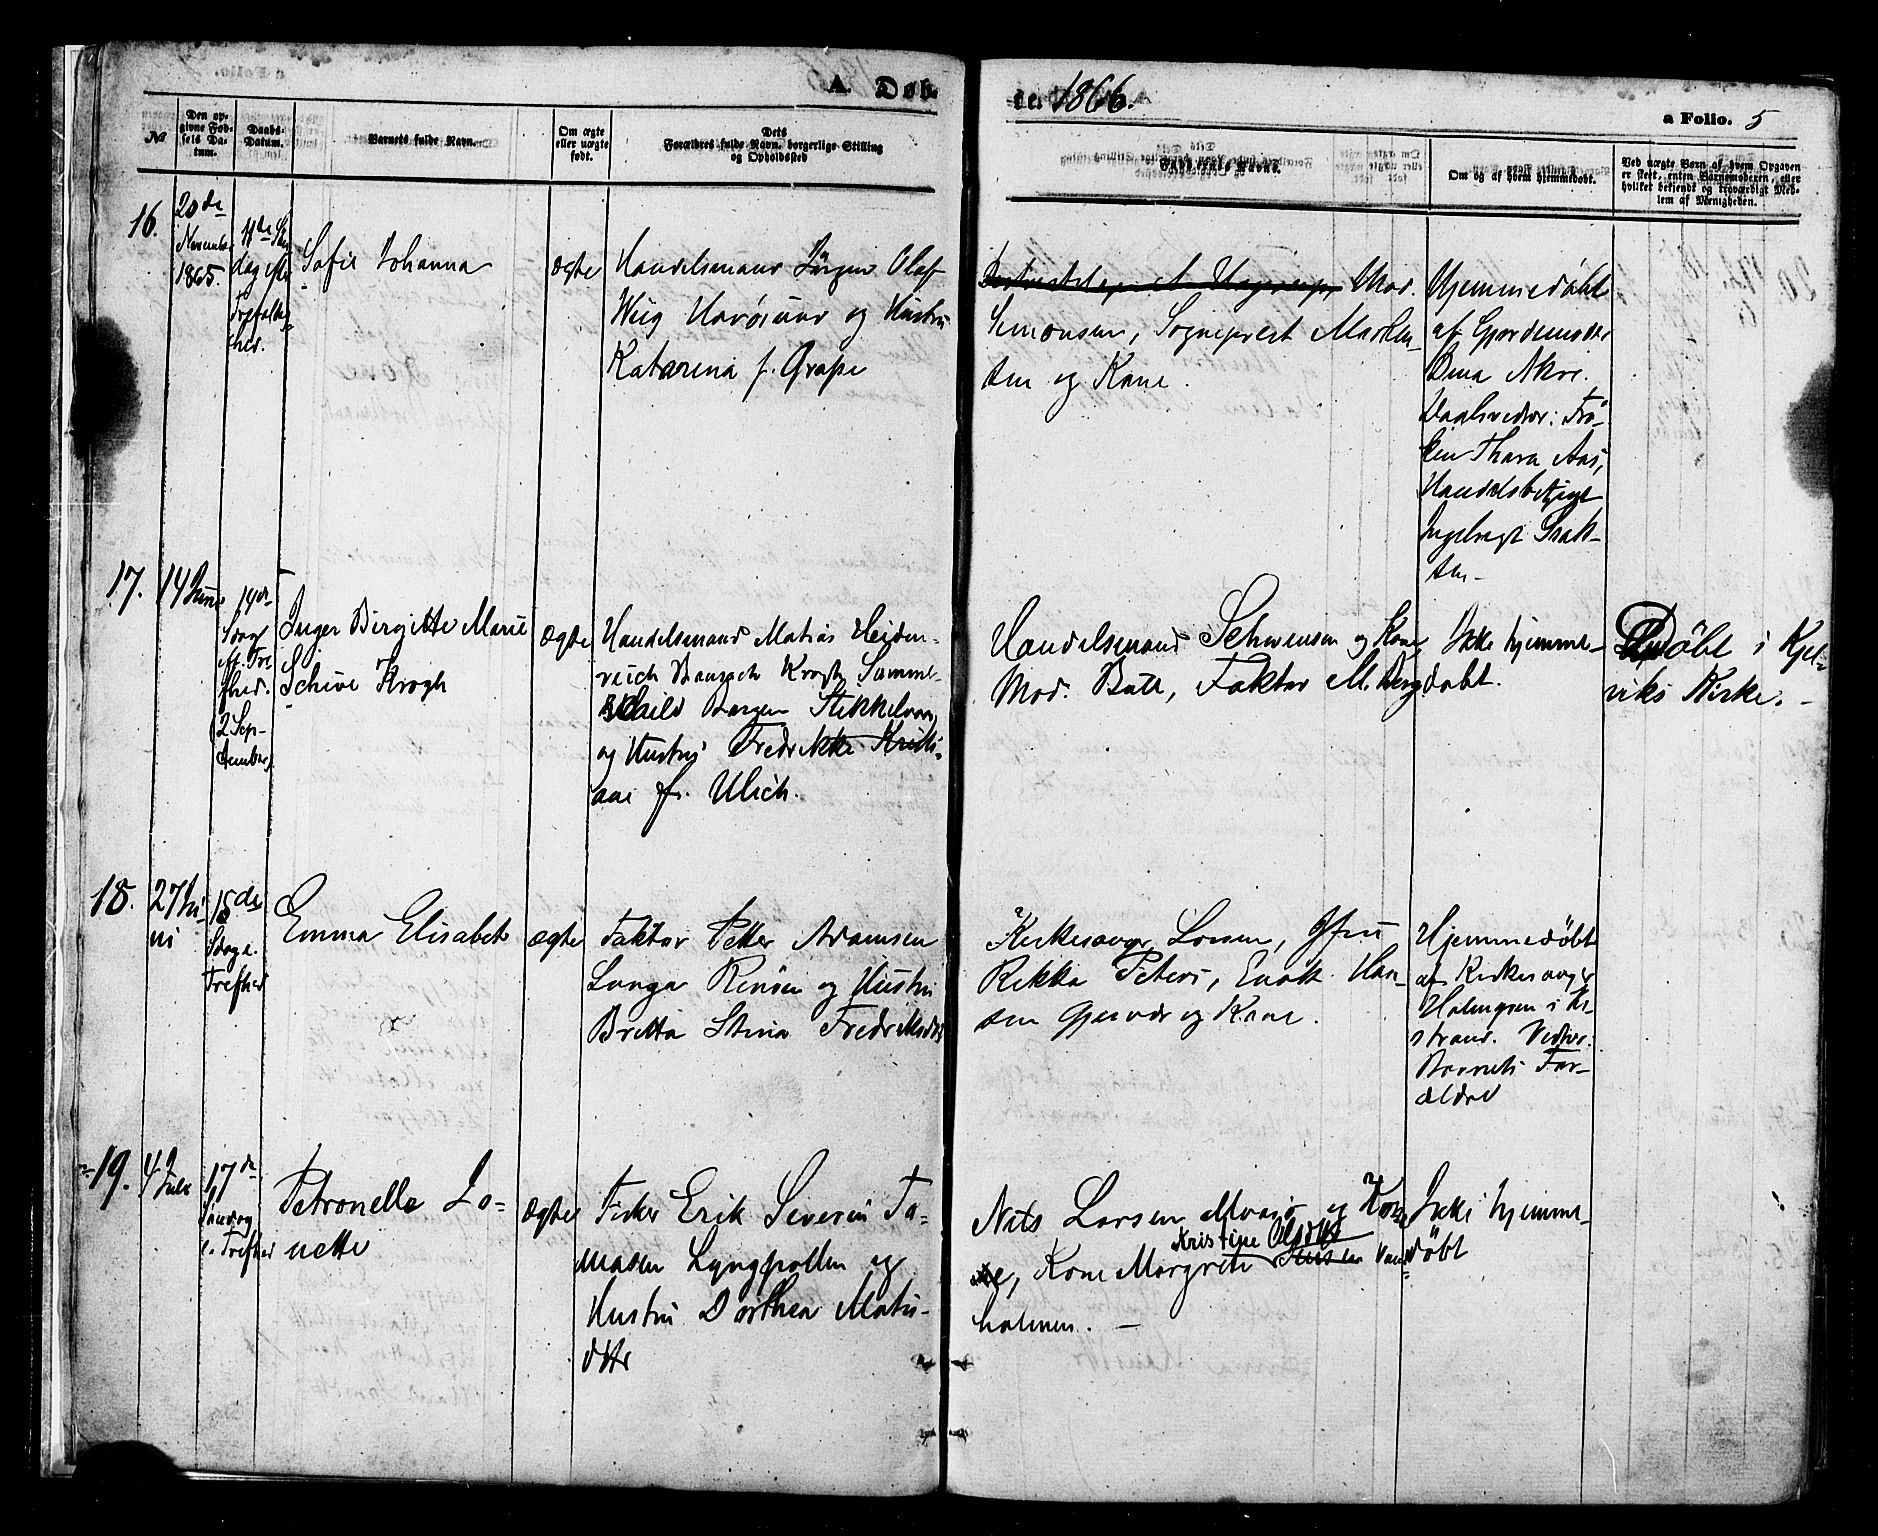 A. Døb-
te. 1866.
a Folio. 5
No
Den op-
givne Fød-
sels Da-
tum.
Daabs-
Datum.
Barnets fulde Navn.
Om ægte
eller uægte
født.
Dets
Forældres fulde Navn, borgerlige Stilling
og Opholdssted
Faddernes Navne.
Om og af hvem hjemmedøbt.
Ved uægte Børn af hvem Opgaven
er skeet, enten Barnemoderen, eller
hvilket bekjendt og troværdigt Med-
lem af Menigheden.
16.
20de
November
1865.
11de
dag efter
Trefoldig-
hed.
Sofie Johanna
ægte
Handelsmand Jørgen Olaf
Wiig Havösund og Hustru
Katarina f. Grape
Mad.
Simonsen, Sogneprest Marken-
sen og Kone.
Hjemmedöbt
af Gjordemoder
Daabsvidner: Frö-
ken Thora Aas,
Handelsbetjent
17.
14 Juni
14de
Sdag
ef. Tre
fhed.
(2 Sep-
tember)
Inger Birgitte Marie
Schive Krogh
ægte
Handelsmand Matias Heiden-
reich Krogh,
og Hustru Fredrikke Kristi-
ane f. Ulich.
Handelsmand Schwensen og Kone
Mad. Bull, Faktor M. Berg
Ikke hjemme-
döbt.
Döbt i Kjel-
viks Kirke.
18.
27 Ju-
ni
15de
Sdag e.
Trefhed
Emma Elisabet
ægte
Faktor Petter Adamsen
Lunga Renöen og Hustru
Britta Stina Fredriksdtr
Kirkesanger Larsen, Jfru
Rikka Peters, Enok Han-
sen Gjesvær og Kone.
Hjemmedöbt
af Kirkesanger
Holmgren i Ki-
strand. Vidner:
Barnets For-
ældre
19.
4 Juli
17de
Söndag
e. Trefhed
Petronelle Jo-
nette
Ægte
Fisker Erik Severin To-
masen Lyngpollen og
Hustru Dorthea Matis-
dtr
Nils Larsen og Kone
Kristine Olsdtr
Kone Margrete
holmen. —
Ikke hjemme-
döbt